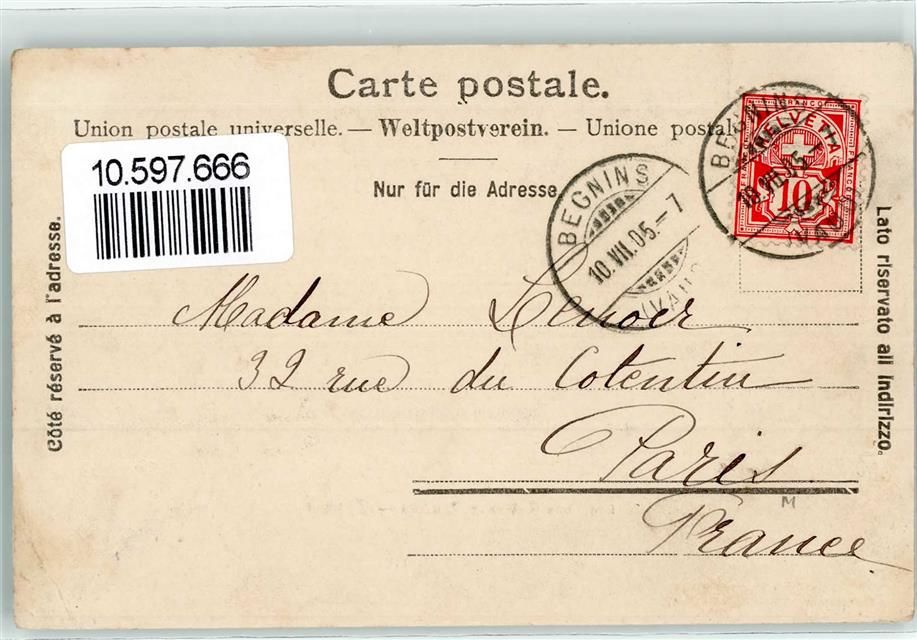 Carte postale.
Union postale universelle. — Weltpostverein. — Unione postal
Nur für die Adresse
10.597.666
Côté réservé à l'adresse.
Lato riservato all indirizzo.
BEGNINS
10.VII.05.–7
(VAUD)
FRANCO
HELVETIA
10
Madame Lenoir
32 rue du Cotentin
Paris
M
France